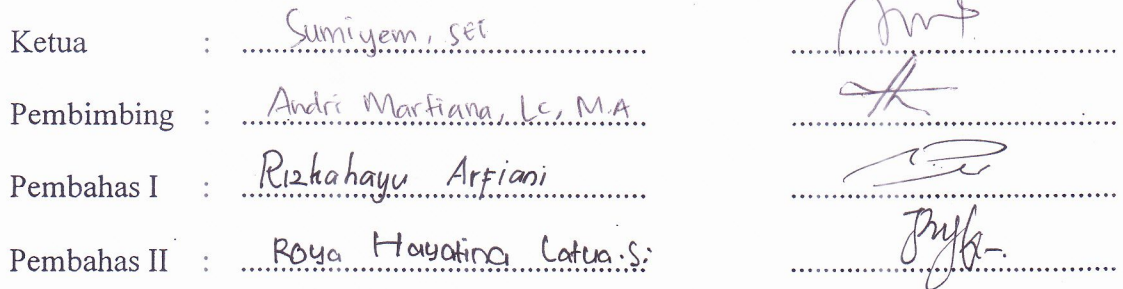 Ketua : Sumiyem, SEI
Pembimbing : Andri Martiana, Lc, M.A
Pembahas I : Rizkahayu Arfiani
Pembahas II : Roya Hayatina Latua.S.